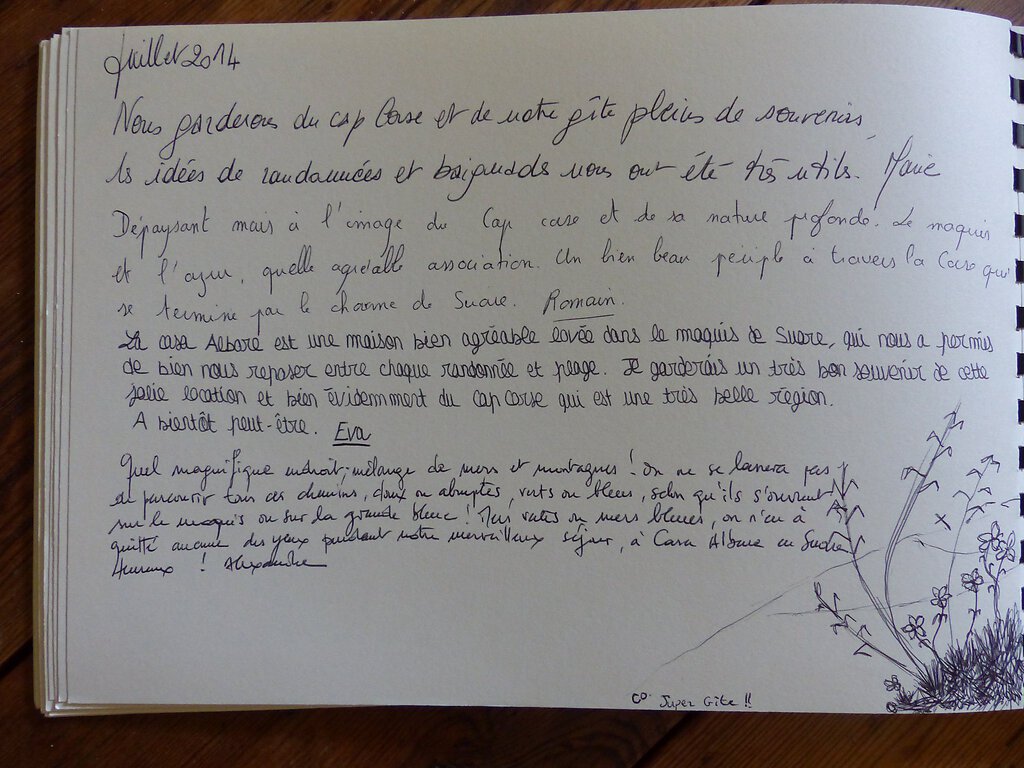 Juillet 2014
Nous garderons du cap Corse et de notre gîte pleins de souvenirs,
les idées de randonnées et baignades nous ont été très utils. Marie
Dépaysant mais à l'image du Cap corse et de sa nature profonde. Le maquis
et l'azur, quelle agréable association. Un bien beau périple à travers la Corse qui
se termine par le charme de Suare. Romain.
La casa Albare est une maison bien agréable lovée dans le maquis de Suare, qui nous a permis
de bien nous reposer entre chaque randonnée et plage. Je garderais un très bon souvenir de cette
jolie location et bien évidemment du cap Corse qui est une très belle région.
A bientôt peut-être. Eva
Quel magnifique endroit, mélange de mers et montagnes ! On ne se lassera pas
de parcourir tous ces chemins, doux ou abruptes, verts ou bleus, selon qu'ils s'ouvrent
sur le maquis ou sur la grande bleue ! Mers vertes ou mers bleues, on n'en a
quitté aucune des yeux pendant notre merveilleux séjour, à Casa Albare
! Alexandre
Super Gîte !!